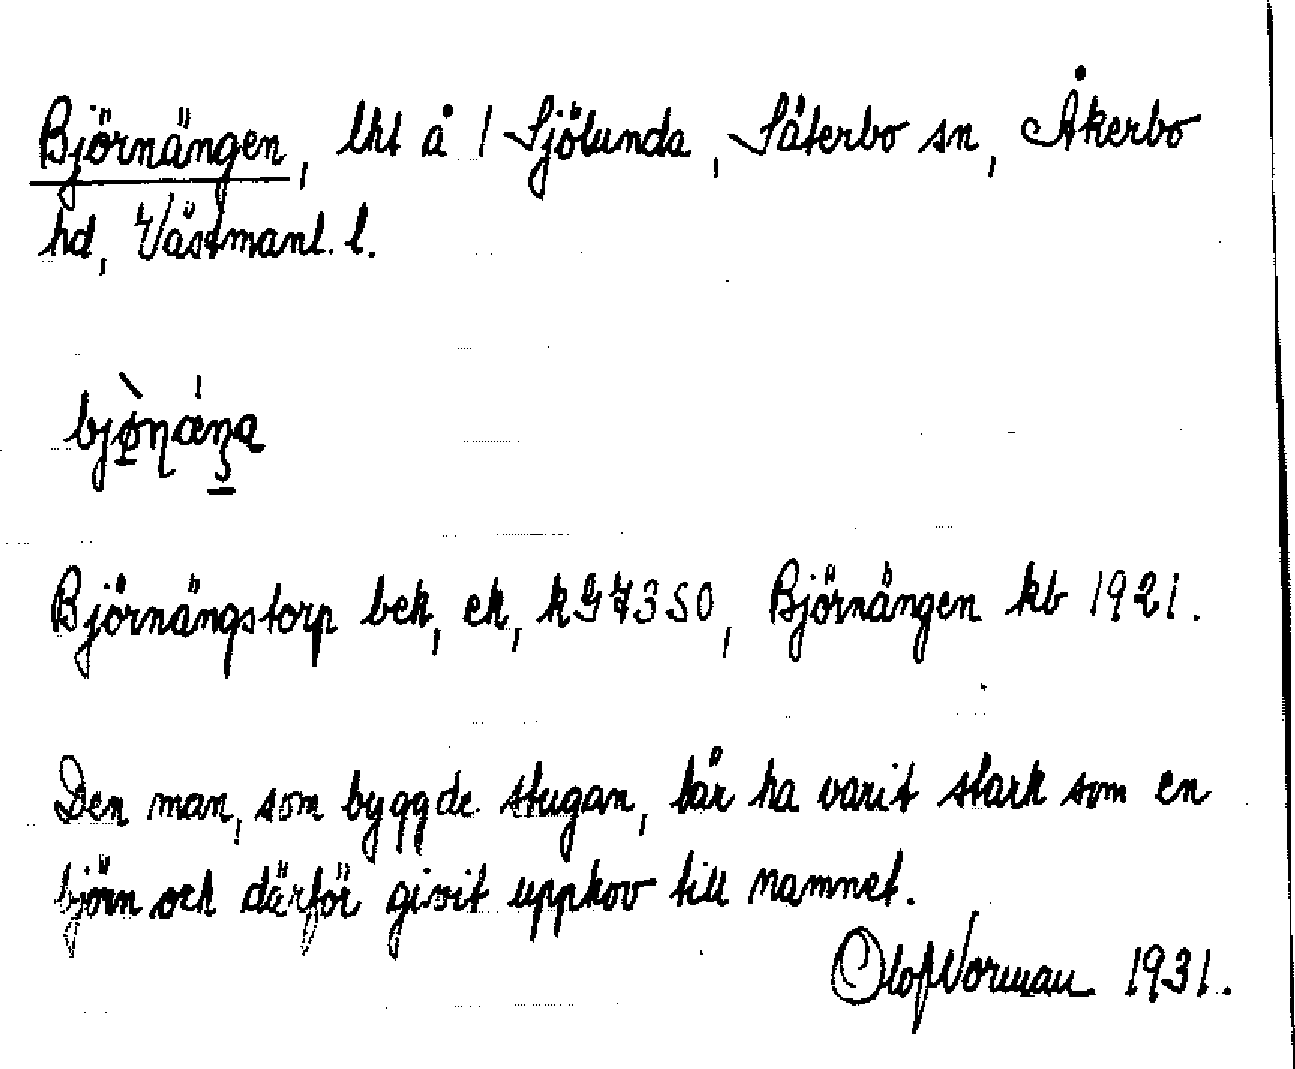 Björnängen, lht å 1 Sjölunda, Säterbo sn, Åkerbo
hd, Västmanl. l.
bjø̀ṇæŋa
Björnängstorp bek, ek, kG7350, Björnängen kb 1921.
Den man, som byggde stugan, lär ha varit stark som en
björn och därför givit upphov till namnet.
Olof Norman 1931.